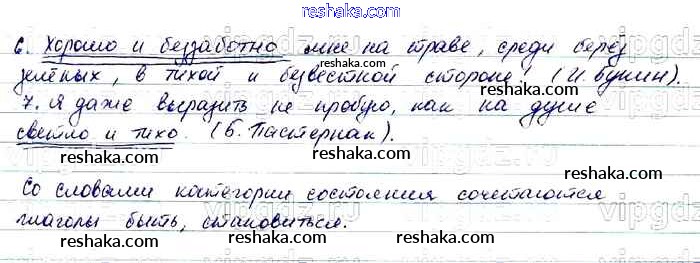 reshaka.com
6. Хорошо и беззаботно мне на траве, среди берёз
зелёных, в тихой и безвестной стороне! (И. Бунин).
7. Я даже выразить не пробую, как на душе
светло и тихо. (Б. Пастернак).
Со словами категории состояния сочетаются
глаголы быть, становиться.
reshaka.com
reshaka.com
reshaka.com
reshaka.com
reshaka.com
reshaka.com
vipgdz.ru
vipgdz.ru
vipgdz.ru